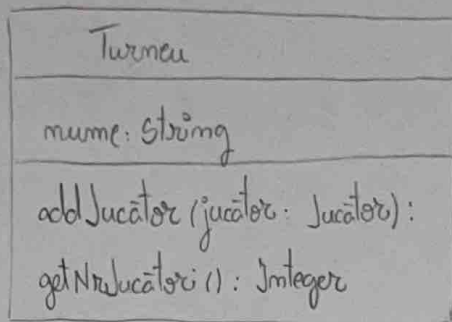 Turneu
nume: String
addJucător (jucător: Jucător):
getNrJucători(): Integer